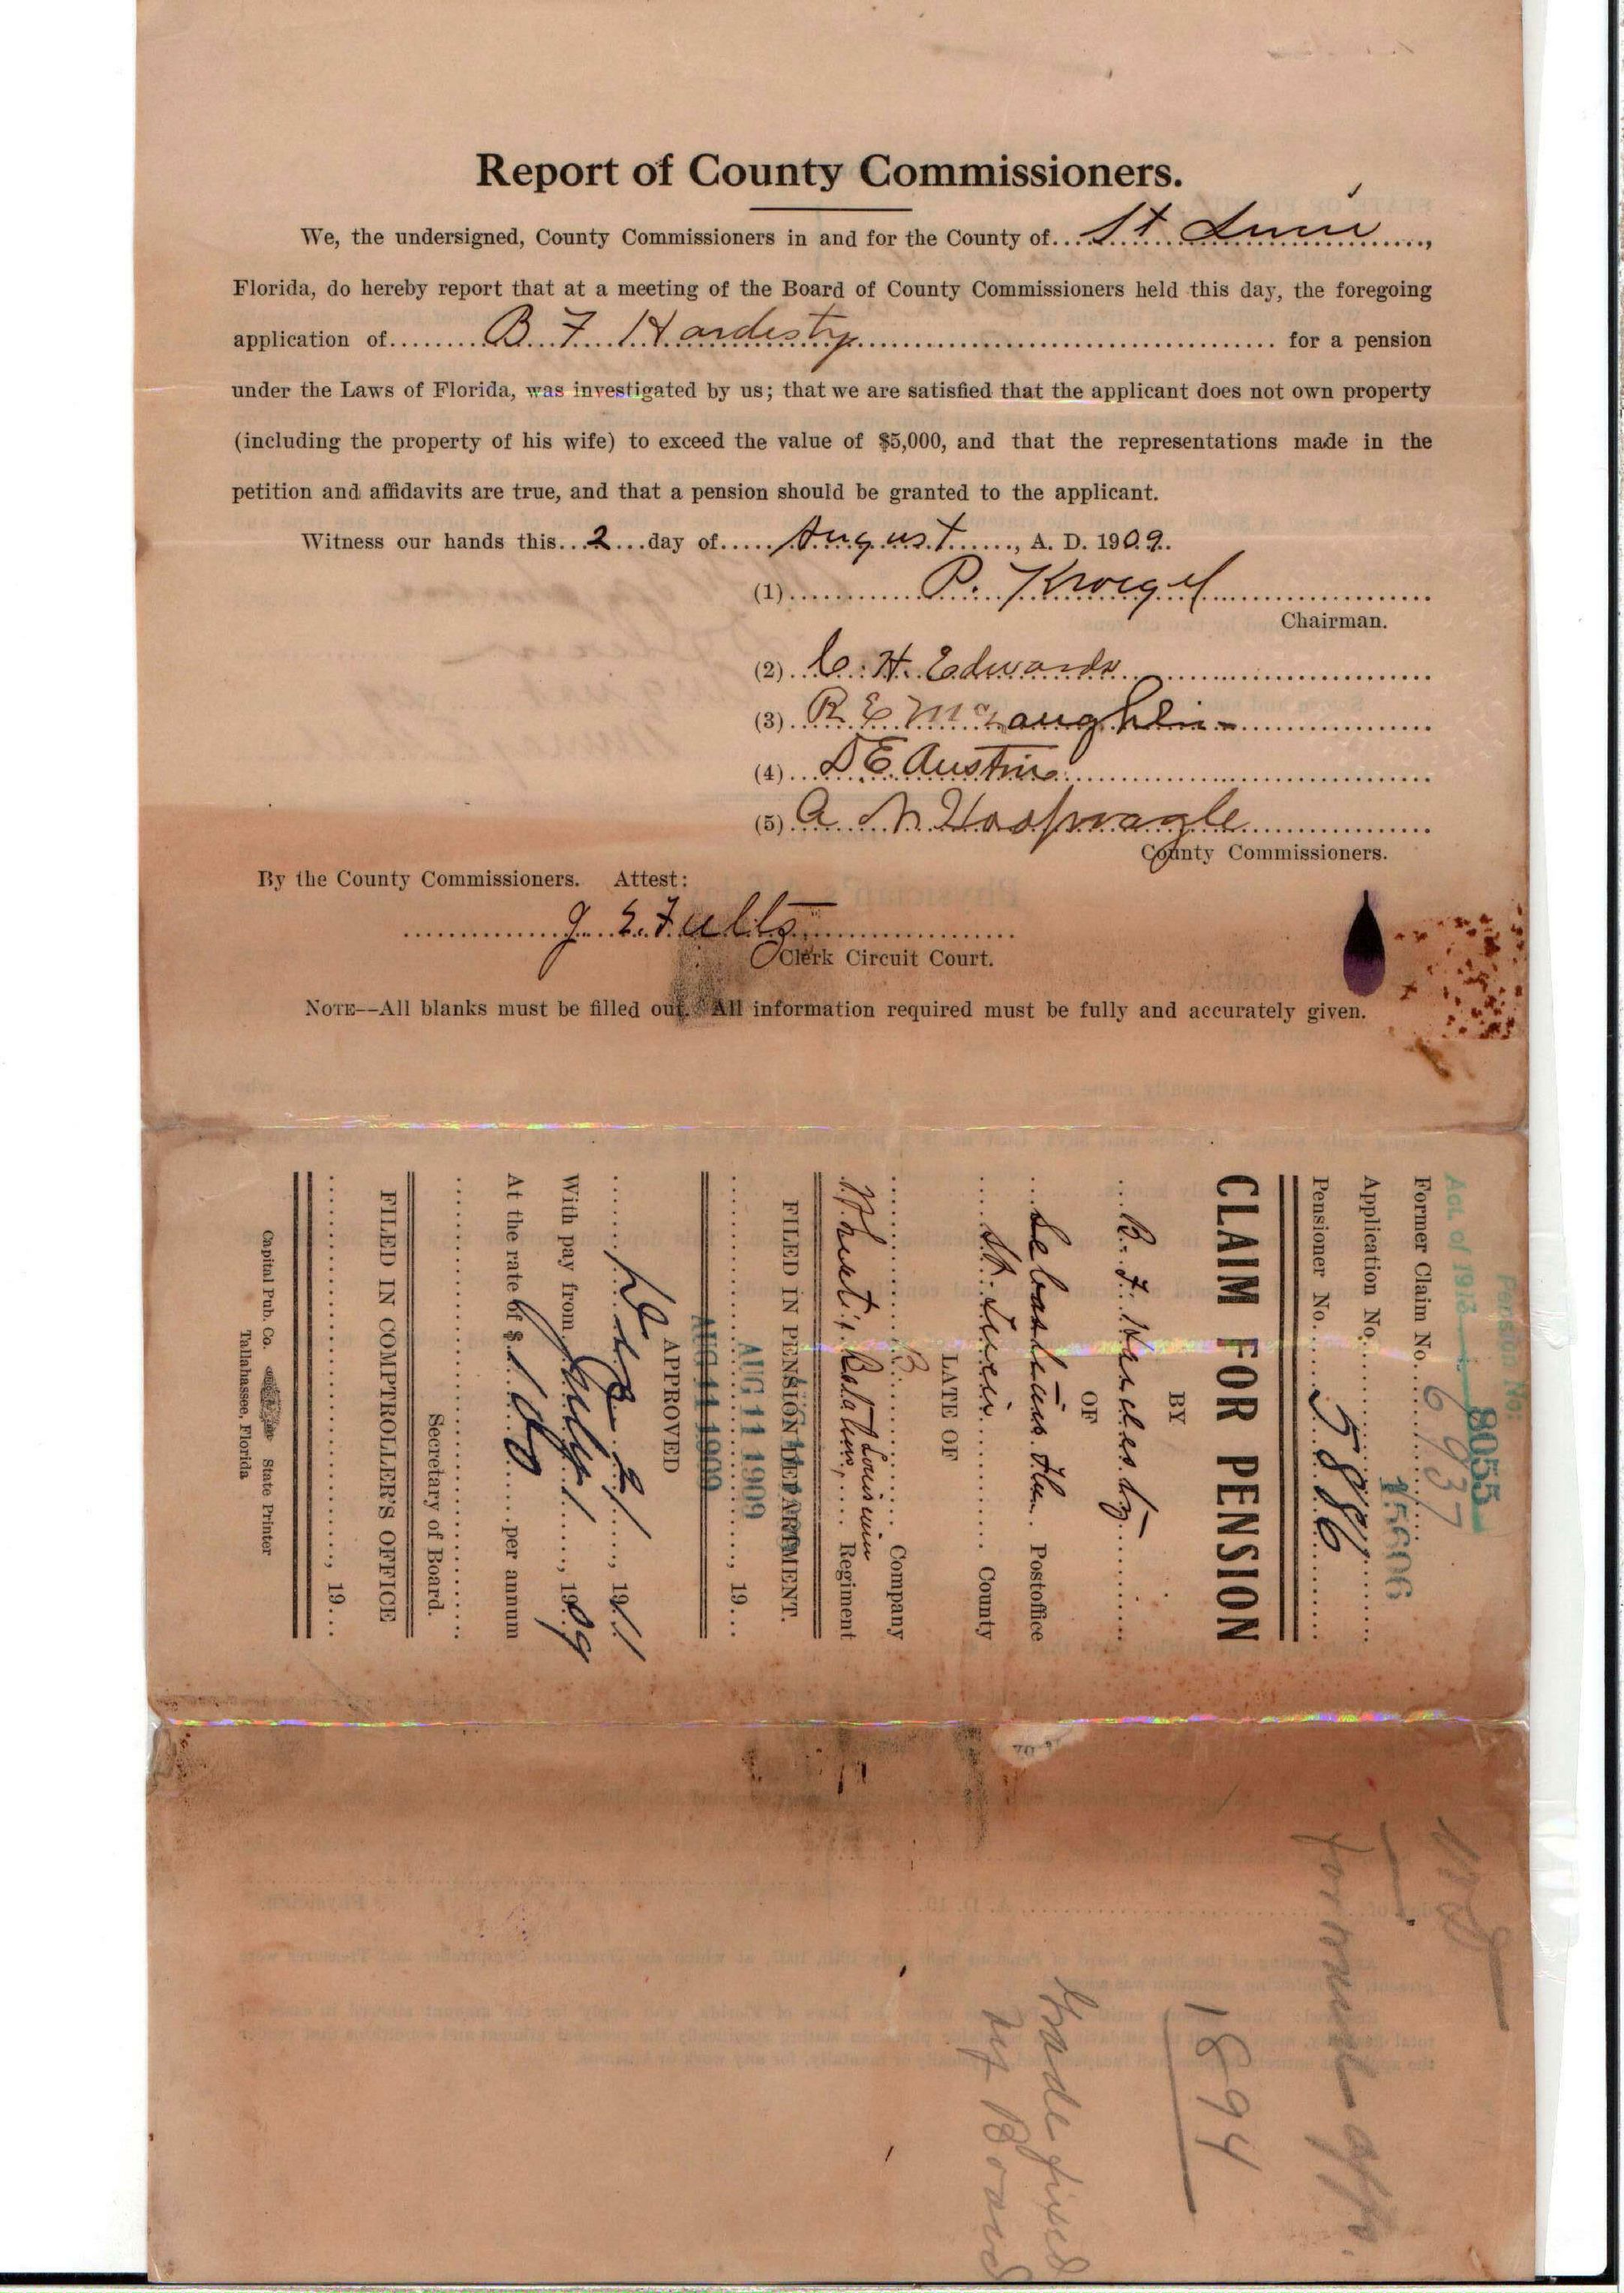 Report of County Commissioners.
We, the undersigned, County Commissioners in and for the County of St Lucie,
Florida, do hereby report that at a meeting of the Board of County Commissioners held this day, the foregoing
application of B F Hardesty for a pension
under the Laws of Florida, was investigated by us; that we are satisfied that the applicant does not own property
(including the property of his wife) to exceed the value of $5,000, and that the representations made in the
petition and affidavits are true, and that a pension should be granted to the applicant.
Witness our hands this 2 day of August, A. D. 1909.
(1) P. Kroegel
Chairman.
(2) C. H. Edwards
(3) R E McLaughlin
(4) D E Austin
(5) A
County Commissioners.
By the County Commissioners. Attest:
J. E. Fultz
Clerk Circuit Court.
NOTE--All blanks must be filled out. All information required must be fully and accurately given.
Pension No.
8055
Act. of 1913
Former Claim No. 6937
15606
Application No.
Pensioner No. 5886
CLAIM FOR PENSION
BY
B. F. Hardesty
OF
Sebastian Fla. Postoffice
St. Lucie County
LATE OF
B Company
Louisiana
Wheat's Battalion, Regiment
FILED IN PENSION DEPARTMENT.
AUG 11 1909, 19
AUG 11 1909
APPROVED
21, 1911
With pay from July 1, 1909
At the rate of $ per annum
Secretary of Board.
FILED IN COMPTROLLER'S OFFICE
, 19
Capital Pub. Co. State Printer
Tallahassee, Florida
former
1894
Grade fixed
by Board